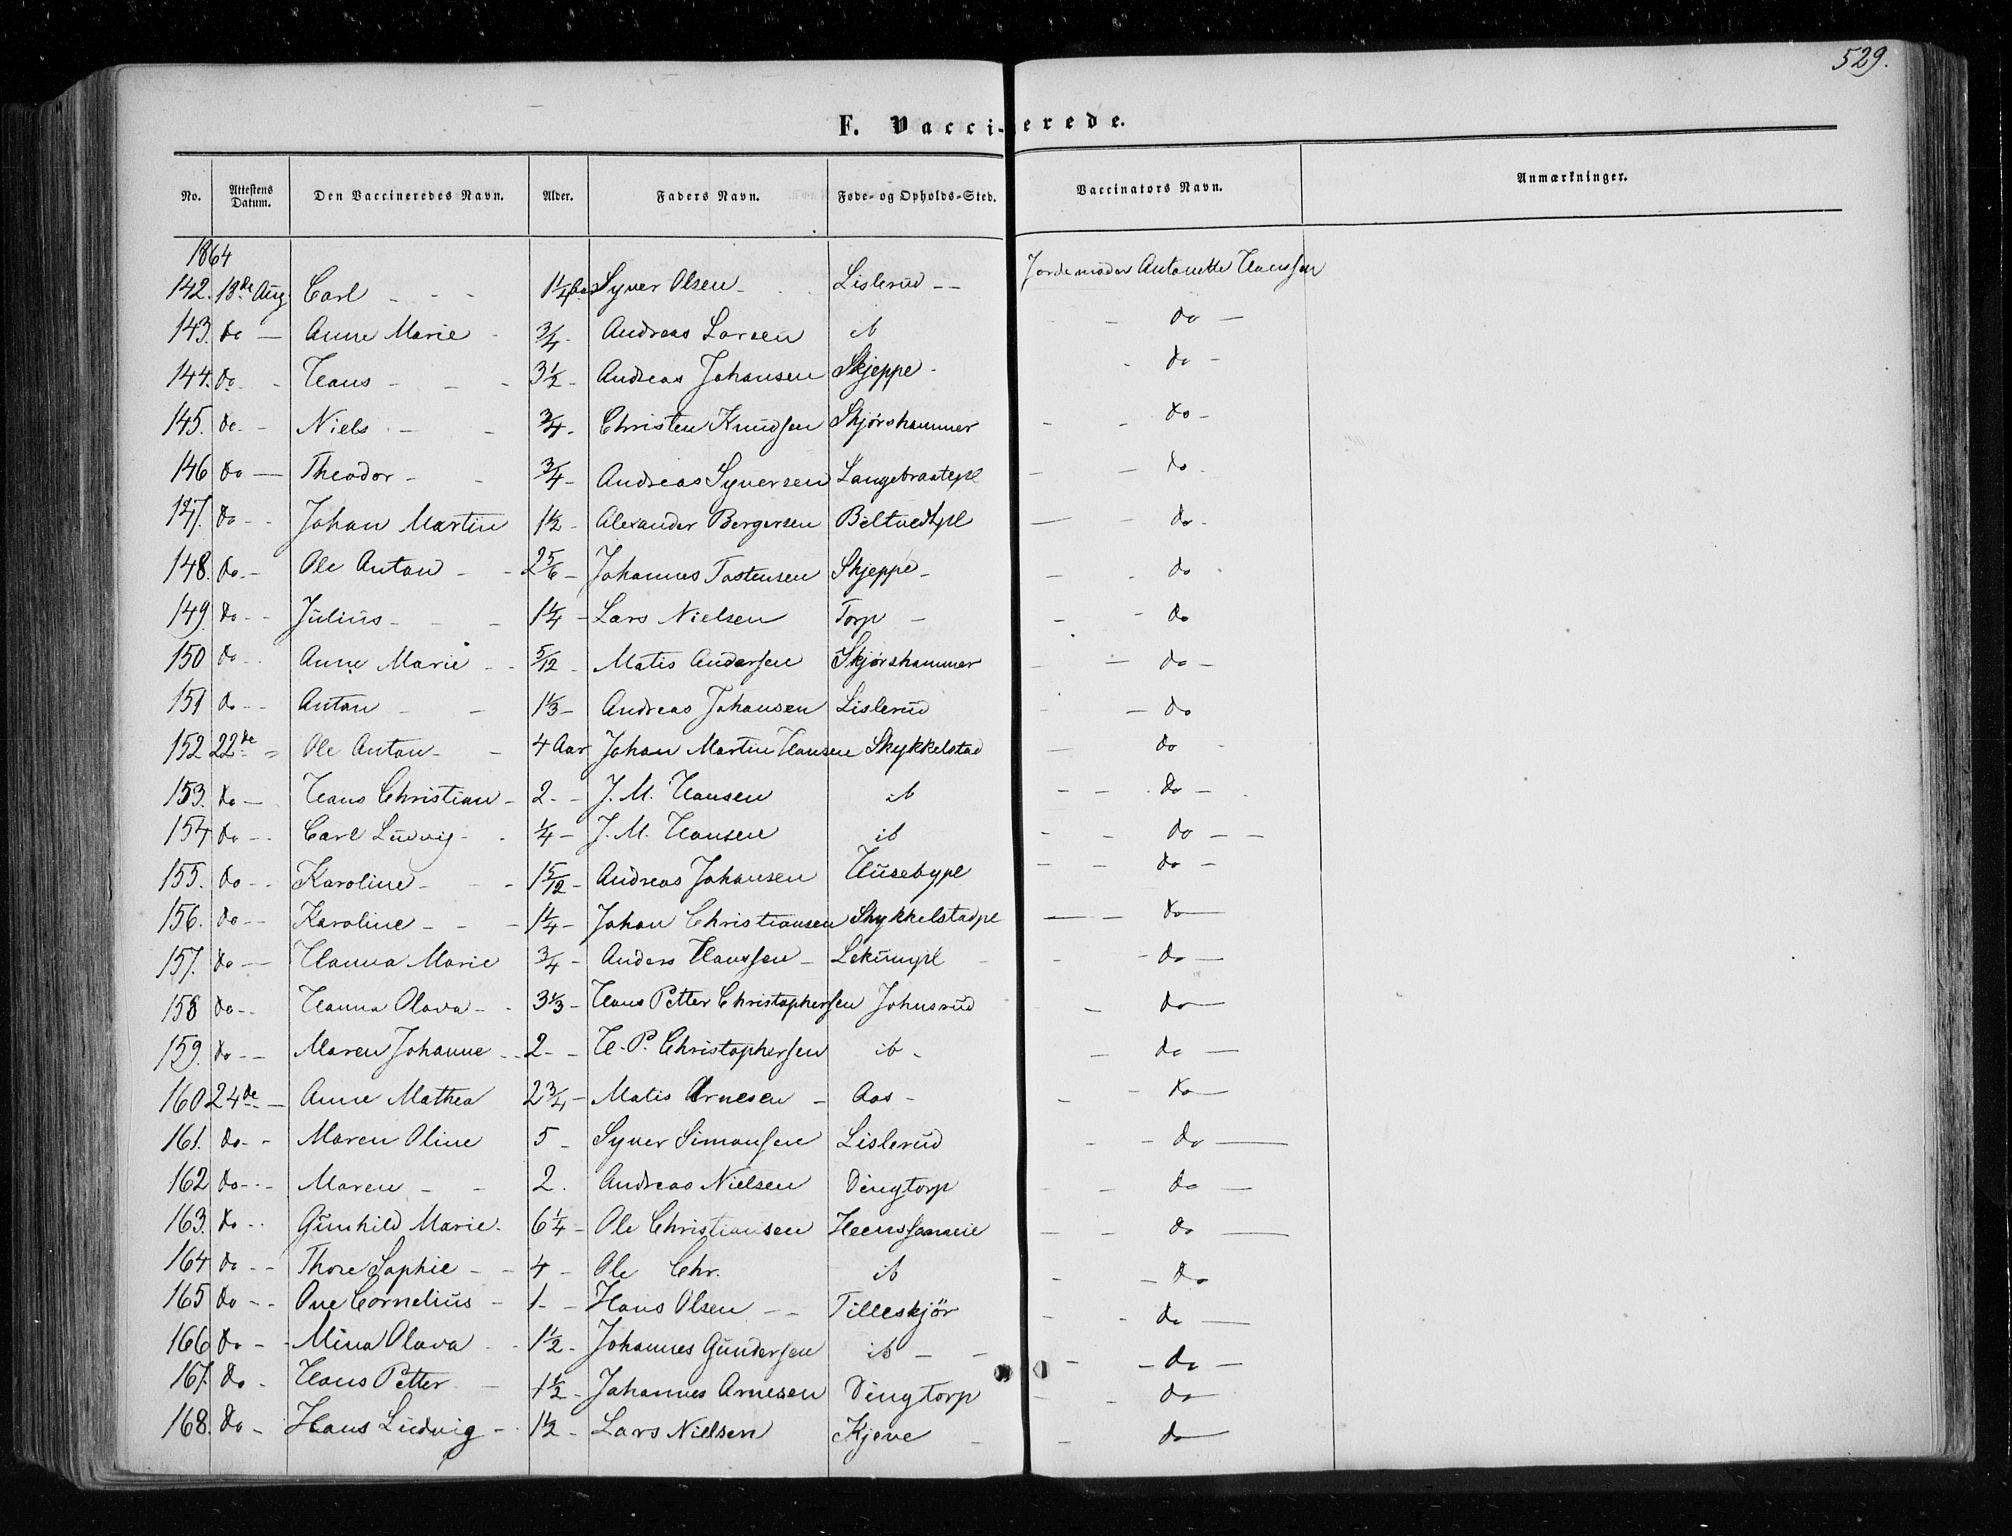 529.
F. Vaccinerede.
No. Attestens Datum. Den Vaccineredes Navn. Alder. Faders Navn. Føde- og Opholds-Sted. Vaccinators Navn. Anmærkninger.
1864
142. 13de Aug Carl - - - 1¼ Aar Syver Olsen - Lislerud -- Jordemoder Antonette Hanssen
143. do — Anne Marie - ¾ - Andreas Larsen ib - - do —
144. do - Hans - - - 3½ - Andreas Johansen Skjeppe - - do -
145. do - - Niels - - ¾ - Christen Knudsen Skjørshammer - - do -
146 do — Theodor - - ¾ - Andreas Syversen Langebraatepl — - do -
147. do - - Johan Martin 1½ - Alexander Bergersen Biltvedtpl — do -
148. do - - Ole Anton - - 2 5/6 - Johannes Tostensen Skjeppe - - - do -
149. do - - Julius - - - 1¼ - Lars Nielsen Torp - - - do
150 do - - Anne Marie - - 5/12 - Matis Andersen Skjørshammer - — do -
151 do - - Anton - - 1⅓ - Andreas Johansen Lislerud - — do
152 22de = Ole Anton - - 4 Aar Johan Martin Hansen Skykkelstad — do -
153. do — Hans Christian - 2 - - J. M. Hansen ib - - do -
154 do - - Carl Ludvig - - ¼ - J. M. Hansen ib - - do - -
155. do - - Karoline - - - 1 5/12 - Andreas Johansen Husebypl - - do -
156. do - - Karoline - - - 1¼ - Johan Christiansen Skykkelstadpl — - do —
157. do — Hanna Marie ¾ - Anders Hanssen - Lekumpl - - - do —
158 do - - Hanna Olava - - 3⅓ - Hans Petter Christophersen Johnsrud - do —
159. do - - Maren Johanne - - 2 - - H. P. Christophersen ib - - do —
160 24de — Anne Mathea 2¾ - Matis Arnesen - Aas - - - do —
161. do - - Maren Oline 5 - Syver Simonsen Lislerud - - do —
162 do - - Maren - - 2. Andreas Nielsen Dingtorp - - do —
163. do - - Gunhild Marie - 6¼ - Ole Christiansen - - do —
164 do - - Thore Sophie - - 4 - Ole Chr. ib - - do
165 do - - Ove Cornelius - 1 - - Hans Olsen - - Tilleskjör - - do —
166 do - - Mina Olava - - 1½ - Johannes Gundersen ib - - - - do —
167. do - Hans Petter - - 1½ - Johannes Arnesen Dingtorp - - do —
168. do - Hans Ludvig - - 1½ - Lars Nielsen Kjeve - - do —